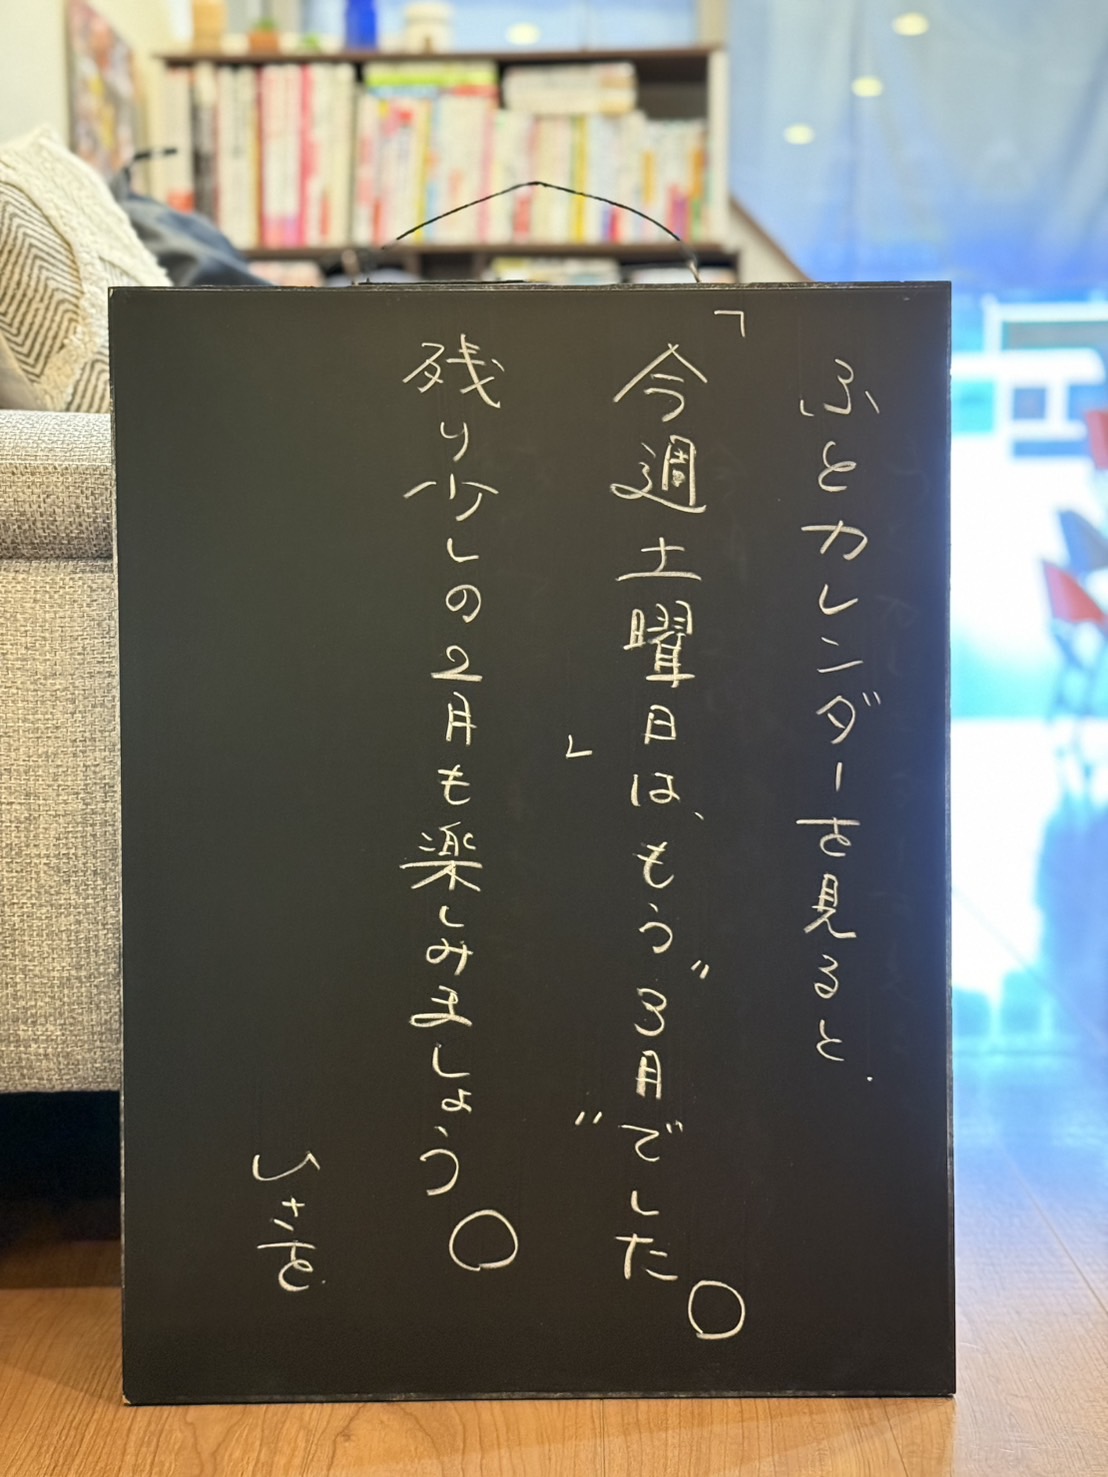 ふとカレンダーを見ると、
「今週土曜日は」、もう"3月"でした。
残り少しの2月も楽しみましょう。
ひさを